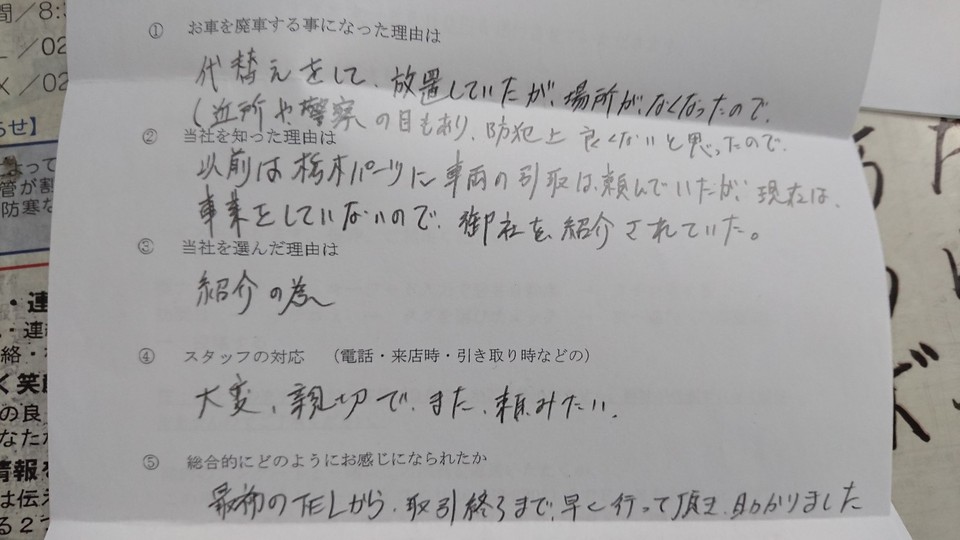 ① お車を廃車する事になった理由は
代替えをして、放置していたが、場所が、なくなったので、
(近所や警察の目もあり、防犯上良くないと思ったので、
② 当社を知った理由は
以前は栃木パーツに車両の引取は頼んでいたが、現在は、
事業をしていないので、御社を紹介されていた。
③ 当社を選んだ理由は
紹介の為
④ スタッフの対応 (電話・来店時・引き取り時などの)
大変、親切で、また、頼みたい。
⑤ 総合的にどのようにお感じになられたか
最初のTELから、取引終了まで、早く行って頂き、助かりました
間/8:
/02
X/02
らせ】
よって
管が割
防寒な
・連
・連絡
絡・
く笑
の良
なたか
情報を
は伝え
る27